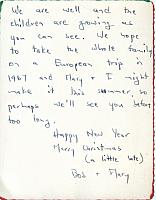 We are well and the
children are growing as
you can see. We hope
to take the whole family
on a European trip in
1967 and Mary & I might
make it this summer, so
perhaps we'll see you before
too long.
Happy New Year
Merry Christmas
(a little late)
Bob & Mary